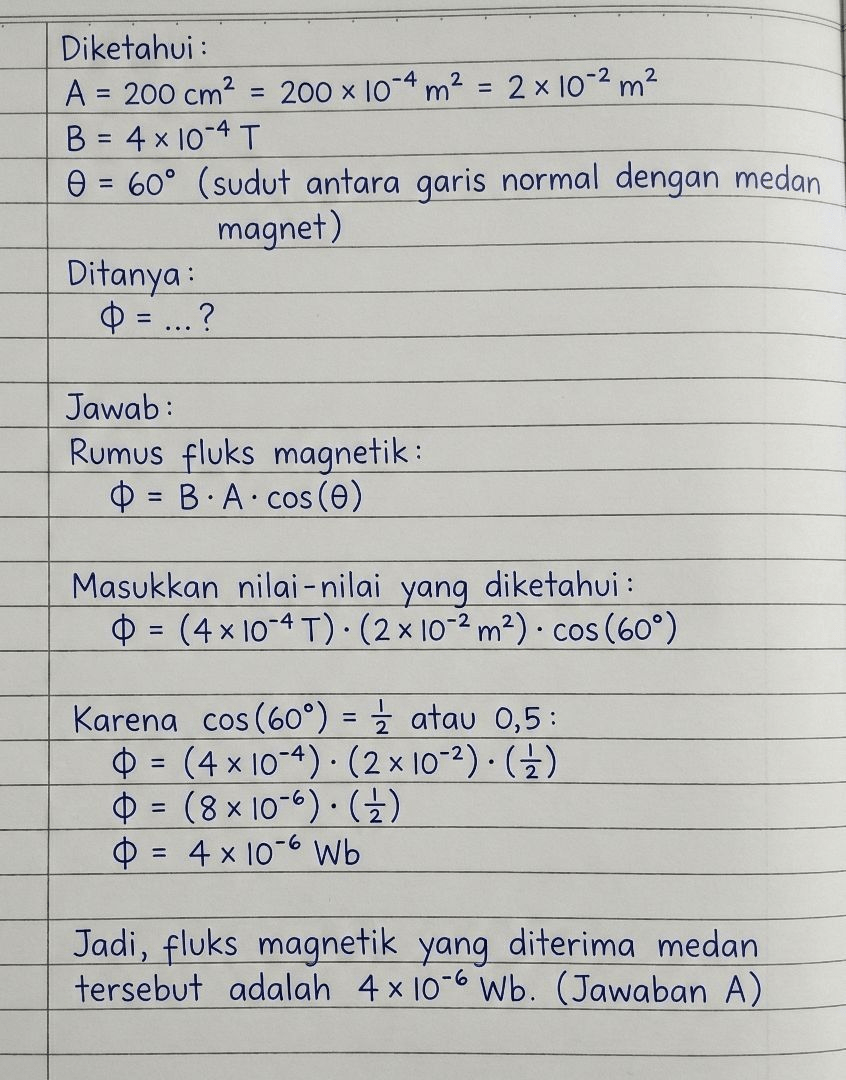 Diketahui :
A = 200 cm² = 200 × 10⁻⁴ m² = 2 × 10⁻² m²
B = 4 × 10⁻⁴ T
θ = 60° (sudut antara garis normal dengan medan
magnet)
Ditanya :
Φ = ... ?
Jawab :
Rumus fluks magnetik :
Φ = B · A · cos(θ)
Masukkan nilai-nilai yang diketahui :
Φ = (4 × 10⁻⁴ T) · (2 × 10⁻² m²) · cos(60°)
Karena cos(60°) = ½ atau 0,5 :
Φ = (4 × 10⁻⁴) · (2 × 10⁻²) · (½)
Φ = (8 × 10⁻⁶) · (½)
Φ = 4 × 10⁻⁶ Wb
Jadi, fluks magnetik yang diterima medan
tersebut adalah 4 × 10⁻⁶ Wb. (Jawaban A)